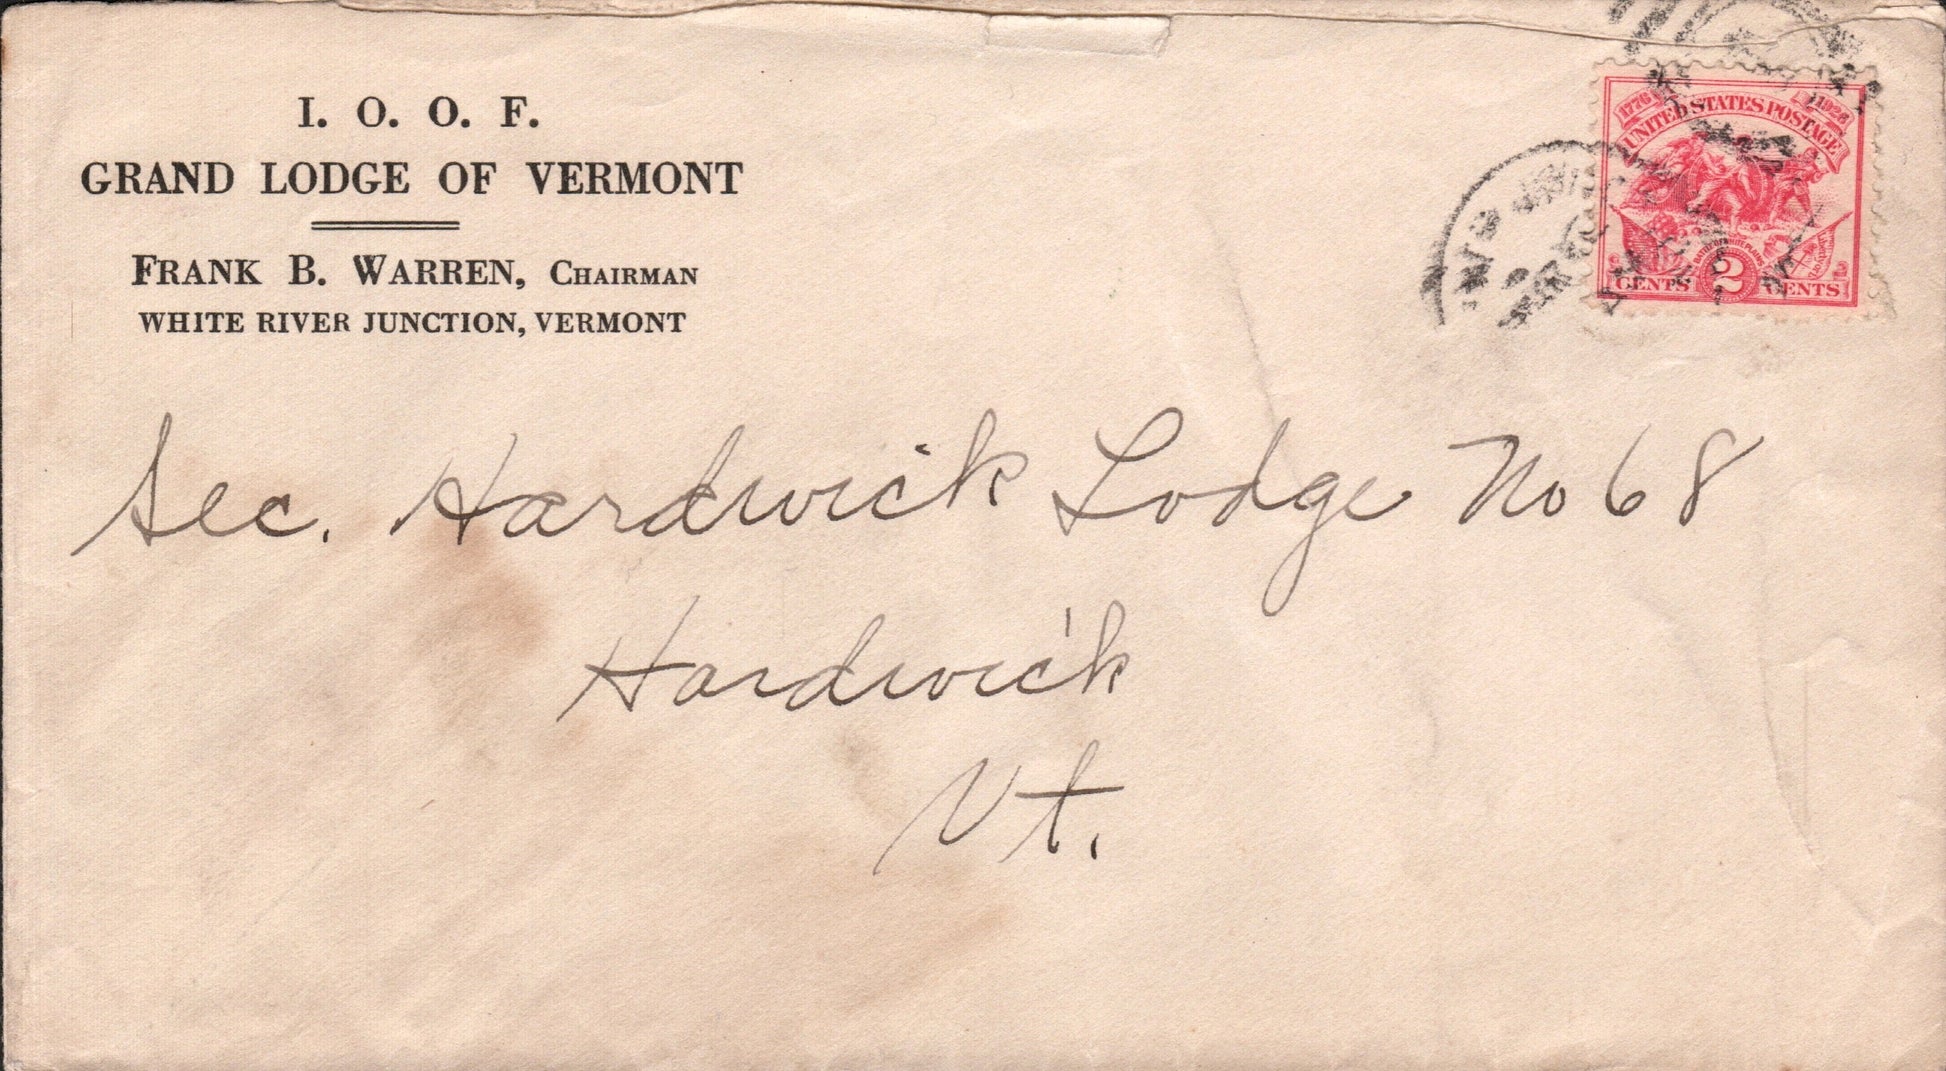 I. O. O. F.
GRAND LODGE OF VERMONT
FRANK B. WARREN, CHAIRMAN
WHITE RIVER JUNCTION, VERMONT
1776 1926
UNITED STATES POSTAGE
BATTLE OF WHITE PLAINS
CENTS 2 CENTS
Sec. Hardwick Lodge No 68
Hardwick
Vt.